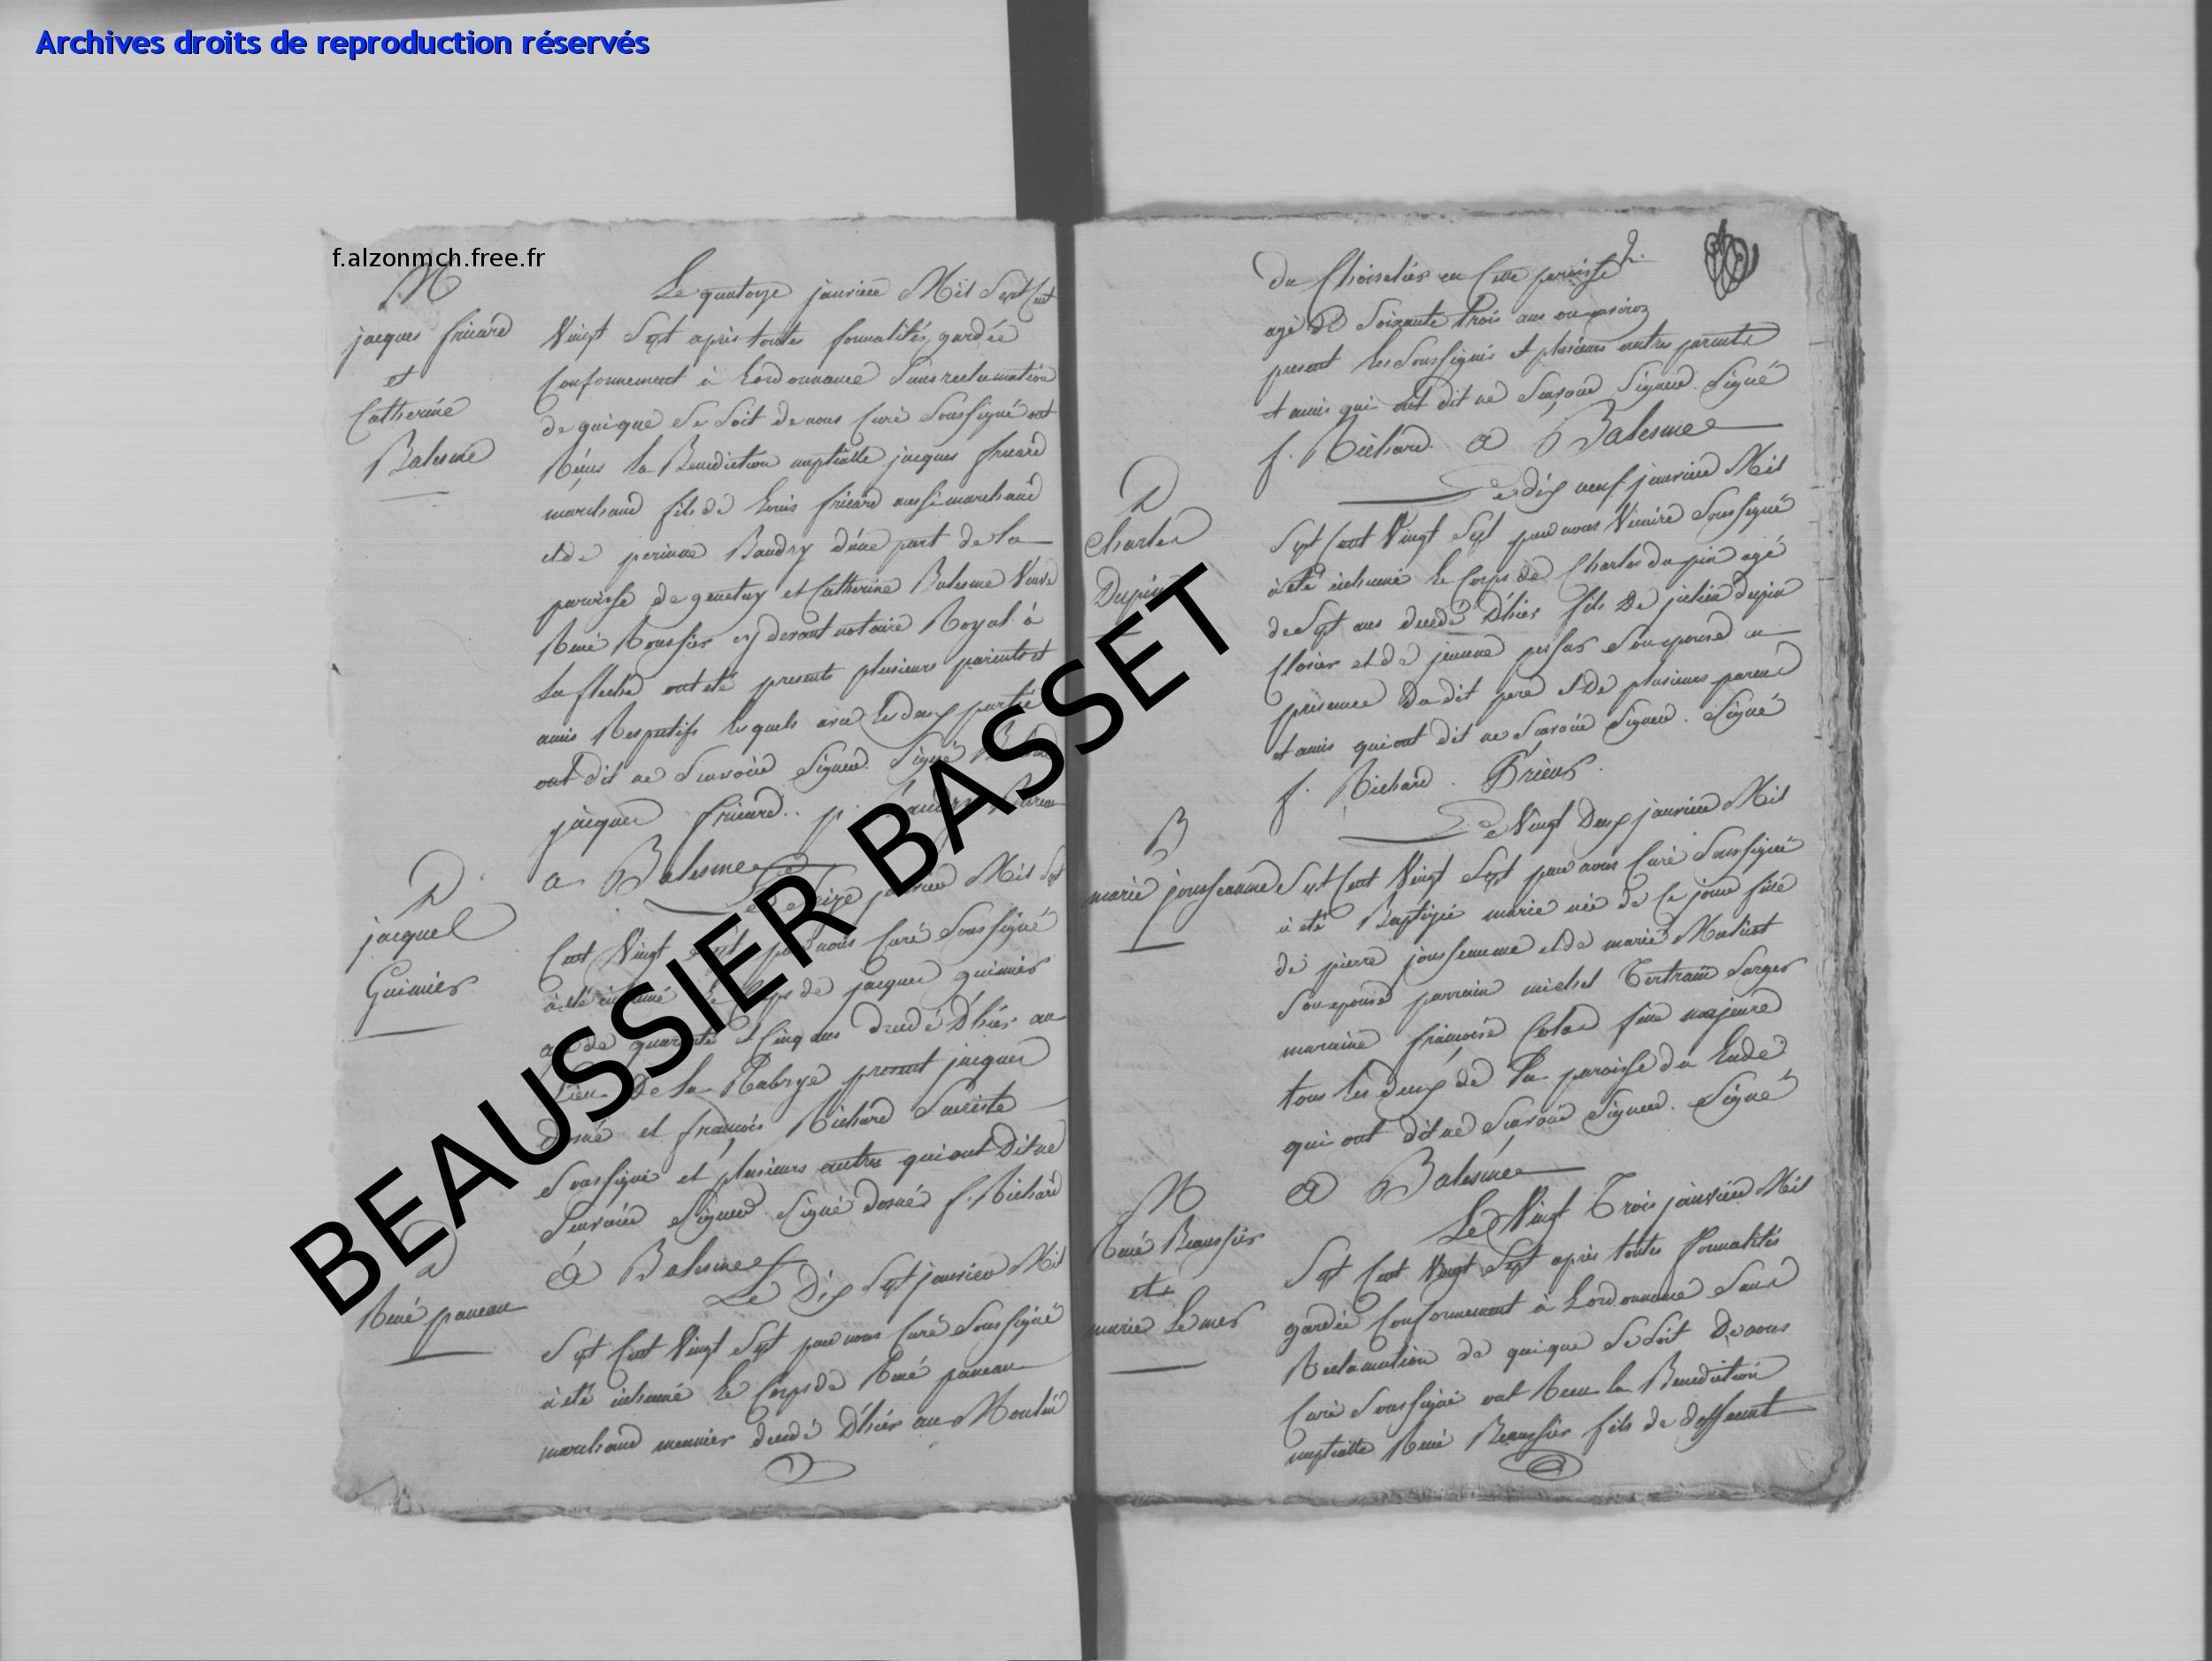 Archives droits de reproduction réservés
f.alzonmch.free.fr
BEAUSSIER BASSET
M
jacques fricard
et
Catherine
Balesme
Le quatorze janvier Mil Sept Cent
Vingt Sept apres toutes formalités gardée
Conformement à Lordonnance Sans reclamation
de qui que Se Soit de nous Curé Soussigné ont
Réçus la Benediction nuptialle jacques fricard
marchand fils de Louis fricard aussi marchand
et de perinne Baudry d'une part de la
paroisse de genetay et Catherine Balesme Veuve
René Roussier cy devant notaire Royal à
La fleche ont eté presents plusieurs parents et
amis Respectifs lesquels avec les deux partie
ont dit ne Scavoir Signer. Signé
jacques fricard. p.
a Balesme
D
jacques
Guimier
Le Seize janvier Mil Sept
Cent Vingt Sept par nous Curé Soussigné
à été inhumé le Corps de jacques guimier
agé de quarante et Cinq ans decedé D'hier au
Lieu De la present jacques
dosné et francois Richard Sacriste
Soussigné et plusieurs autres qui ont Dit ne
Scavoir Signer Signé dosné f. Richard
A Balesme
D
René paneau
Le Dix Sept janvier Mil
Sept Cent Vingt Sept par nous Curé Soussigné
à été inhumé le Corps de René paneau
marchand meunier decedé D'hier au Moulin
2.
du Choiselier en Cette paroisse
agé de Soixante trois ans ou environ
present les Soussignés et plusieurs autres parents
et amis qui ont dit ne Scavoir Signer. Signé
f. Richard. A Balesme
D
Charles
Dupin
Le dix neuf janvier Mil
Sept Cent Vingt Sept par nous Vicaire Soussigné
à été inhumé le Corps de Charles dupin agé
de Sept ans decedé D'hier fils De julien dupin
Closier et de jeanne Son epouse en
presence du dit pere et De plusieurs parens
et amis qui ont dit ne Scavoir Signer. Signé
f. Richard. Prieur.
B
marie jousseaume
Le Vingt Deux janvier Mil
Sept Cent Vingt Sept par nous Curé Soussigné
à été Baptizée marie née de Ce jour fille
de pierre jousseaume et de marie
Son epouse parrain michel Bertrain Sarger
maraine francoise fille majeure
tous les deux de la paroisse du Lude
qui ont dit ne Scavoir Signer. Signé
A Balesme
M
René Beaussier
et
marie Lemer
Le Vingt Trois janvier Mil
Sept Cent Vingt Sept après toutes formalités
gardée Conformement à Lordonnance Sans
Reclamation de qui que Se Soit De nous
Curé Soussigné ont Recu la Benediction
nuptialle René Beaussier fils de deffeunt